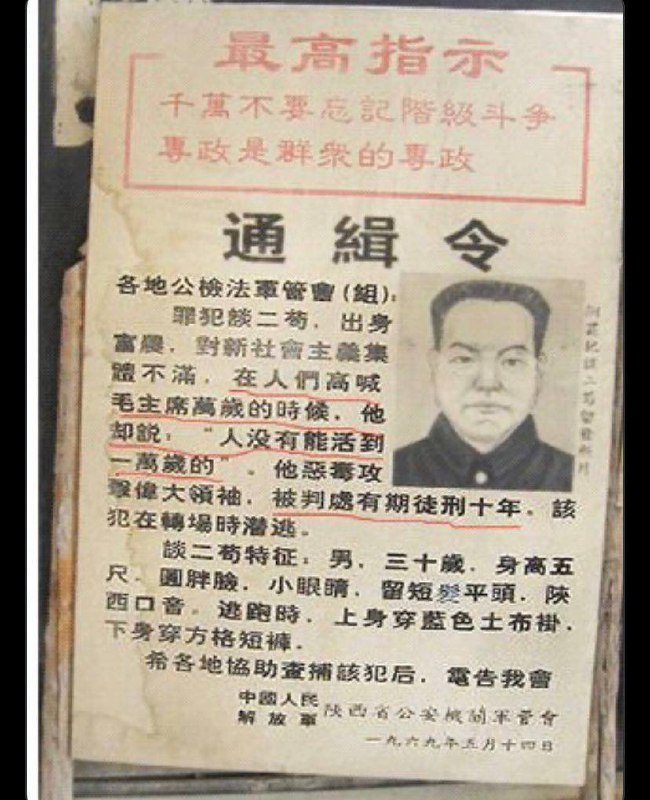 最高指示
千萬不要忘記階級斗争
專政是群衆的專政
通緝令
各地公檢法軍管會(組):
罪犯談二苟．出身
富農．對新社會主義集
體不滿．在人們高喊
毛主席萬歲的時候．他
却説："人没有能活到
一萬歲的"。他惡毒攻
擊偉大領袖．被判處有期徒刑十年。該
犯在轉場時潛逃。
談二苟特征：男．三十歲．身高五
尺．圓胖臉．小眼睛．留短髮平頭．陝
西口音。逃跑時．上身穿藍色土布褂．
下身穿方格短褲．
希各地協助查捕該犯后．電告我會
中國人民
解放軍
陝西省公安機關軍管會
一九六九年五月十四日